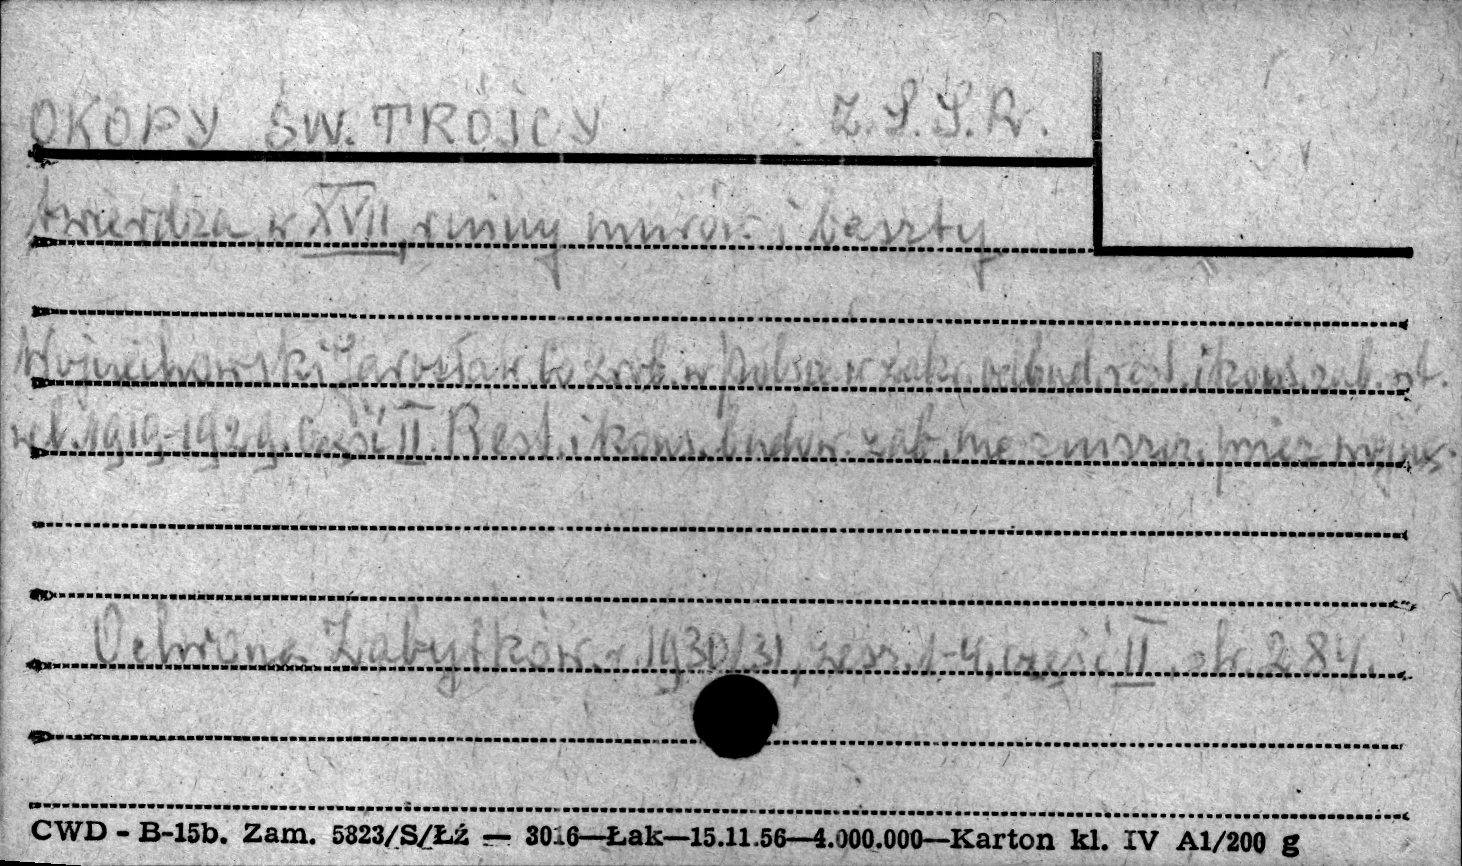 OKOPY ŚW. TRÓJCY Z.S.S.R.
twierdza, w XVII, ruiny murów i baszty
Wojciechowski Jarosław Co zrob. w Polsce w zakr. odbud. rest. i kons. zab. szt.
w l. 1919-1929. Część II. Rest. i kons. budow. zab. nie zniszcz. przez wojnę.
Ochrona Zabytków. r. 1930/31, zesz. 1-4, część II, str. 284.
CWD - B-15b. Zam. 5823/S/Łź — 3016—Łak—15.11.56—4.000.000—Karton kl. IV A1/200 g